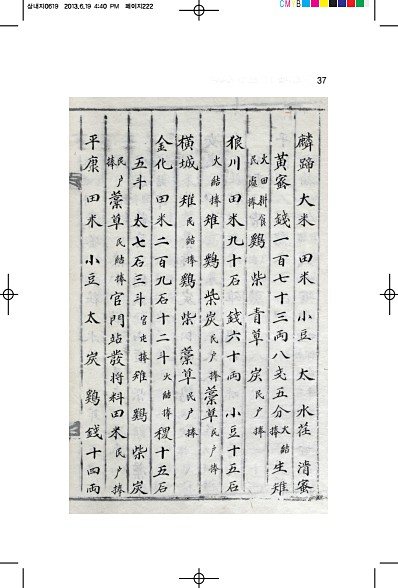 삼내지0619 2013.6.19 4:40 PM 페이지222
CMYB
37
麟蹄 大米 田米 小豆 太 水荏 清蜜
黃蜜 錢一百七十三兩八戔五分大結捧 生雉
大田耕食民處捧 鷄 柴 青草 炭民戶捧
狼川 田米九十石 錢六十兩 小豆十五石
大結捧 雉 鷄 柴炭民戶捧 藁草民戶捧
橫城 雉民結捧 鷄 柴 藁草民戶捧
金化 田米二百九石十二斗火結捧 稷十五石
五斗 太七石三斗官屯捧 雉 鷄 柴 炭
民戶捧 藁草民結捧 官門站發將料田米民戶捧
平康 田米 小豆 太 炭 鷄 錢十四兩